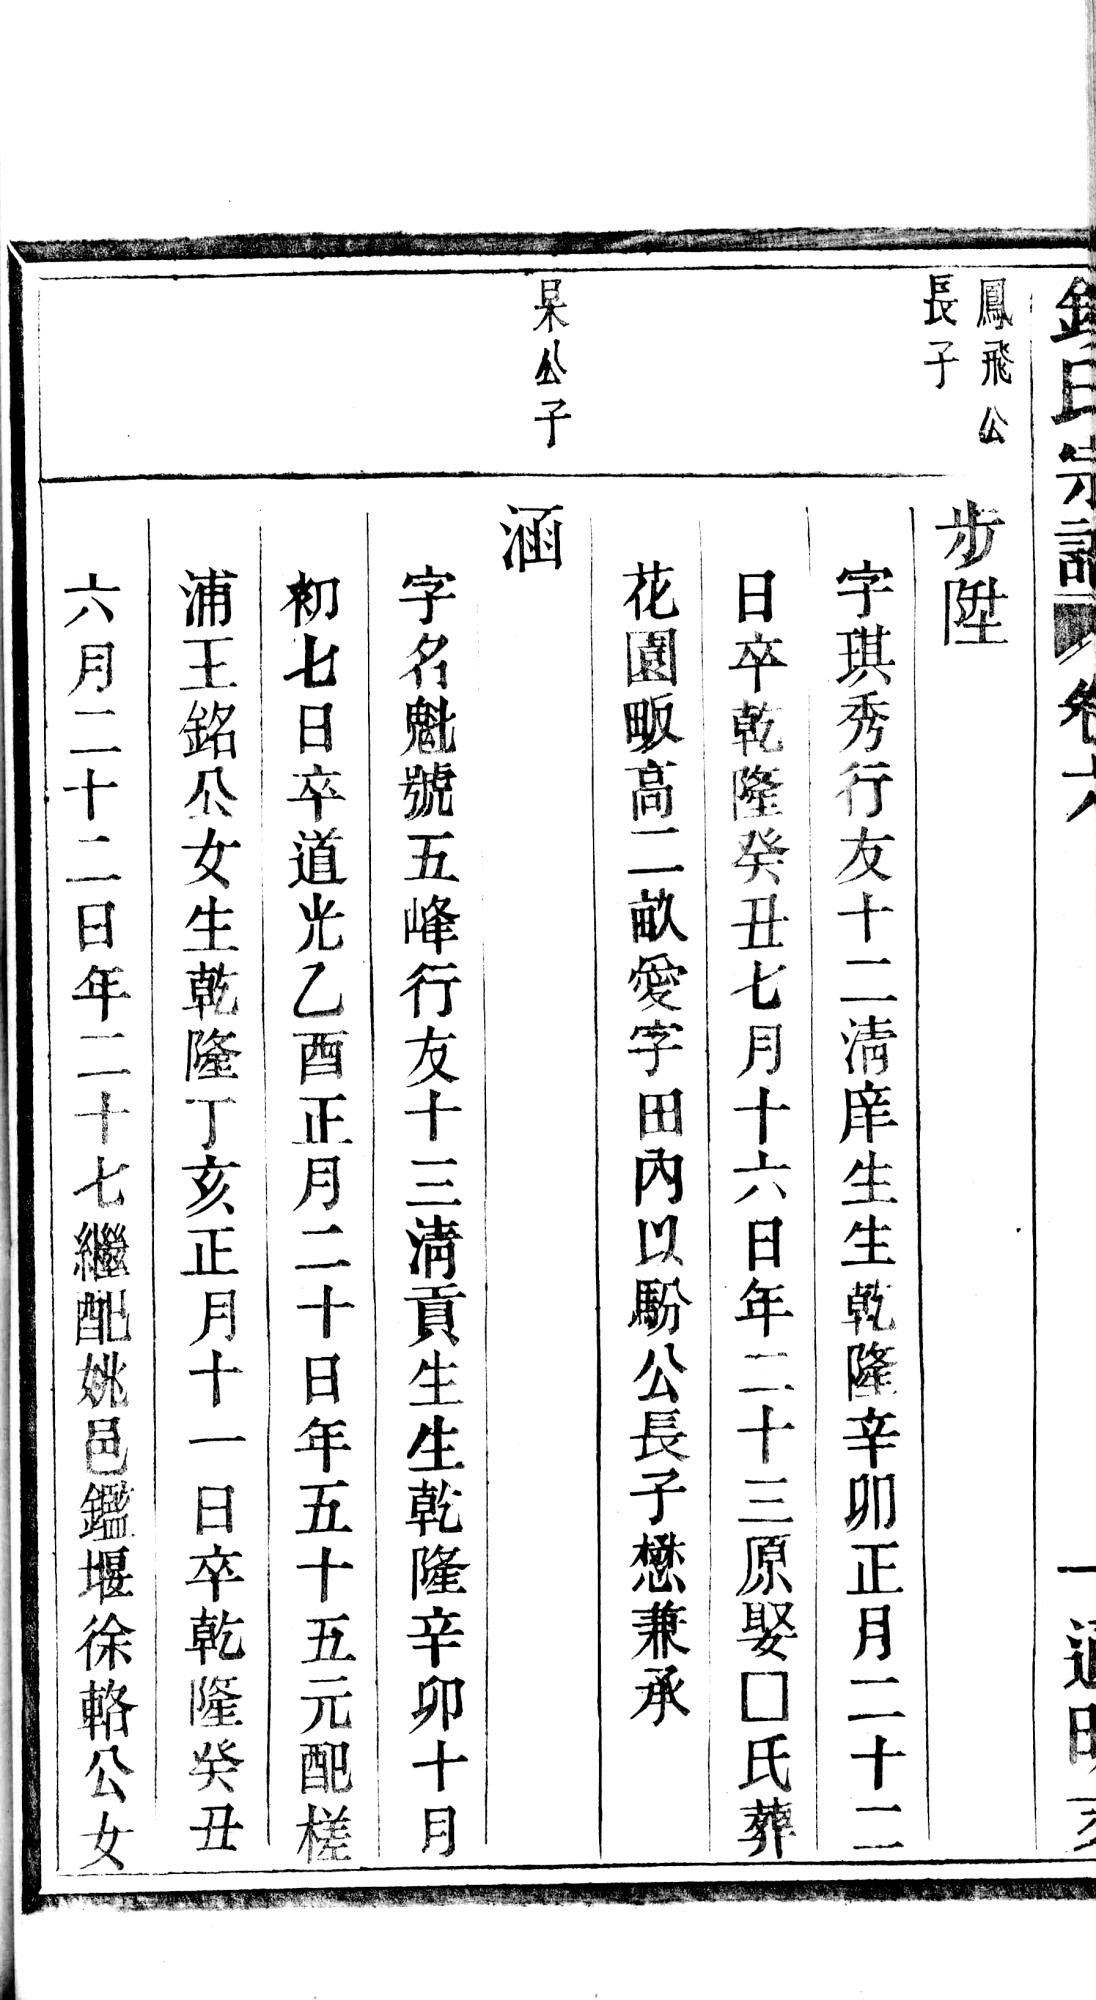 氏宗譜
卷六
一
鳳飛公
長子
步陞
字琪秀行友十二清庠生生乾隆辛卯正月二十二
日卒乾隆癸丑七月十六日年二十三原娶□氏葬
花園畈高二畝愛字田內以馚公長子懋兼承
杲公子
涵
字名魁號五峰行友十三清貢生生乾隆辛卯十月
初七日卒道光乙酉正月二十日年五十五元配槎
浦王銘公女生乾隆丁亥正月十一日卒乾隆癸丑
六月二十二日年二十七繼配姚邑鑑堰徐輅公女